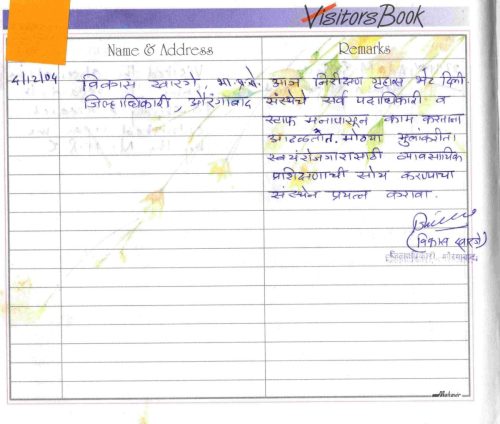 Visitors Book
Name & Address
Remarks
4/12/04
विकास खारगे भा.प्र.से.
जिल्हाधिकारी, औरंगाबाद
आज निरीक्षण गृहास भेट दिली
संस्थेचे सर्व पदाधिकारी व
स्टाफ मनापासून काम करताना
आढळतात. मोठ्या मुलांकरीता
स्वयंरोजगारासाठी व्यावसायिक
प्रशिक्षणाची सोय करण्याचा
संस्थेने प्रयत्न करावा.
(विकास खारगे)
जिल्हाधिकारी, औरंगाबाद